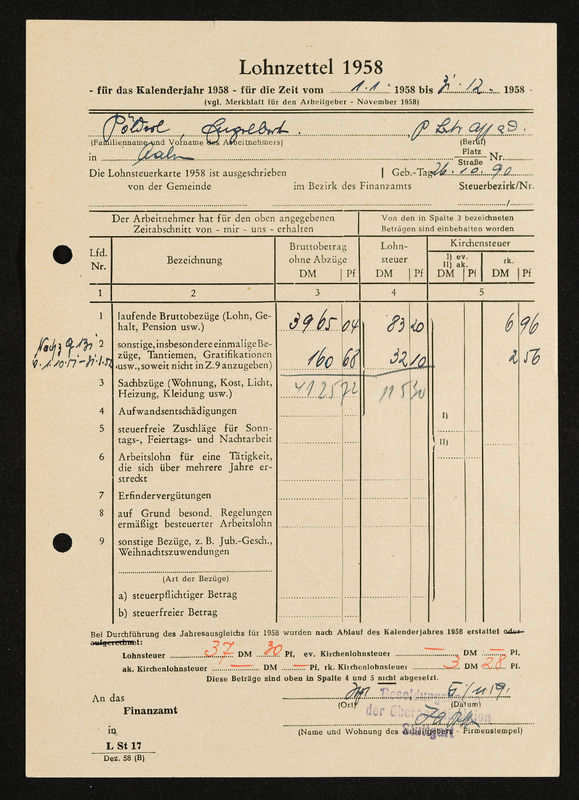 Lohnzettel 1958
- für das Kalenderjahr 1958 - für die Zeit vom 1.1. 1958 bis 31.12. 1958 -
(vgl. Merkblatt für den Arbeitgeber - November 1958)
Engelbert.
(Familienname und Vorname des Arbeitnehmers) (Beruf)
in Aalen Platz Straße Nr.
Die Lohnsteuerkarte 1958 ist ausgeschrieben Geb.-Tag 26.10.90
von der Gemeinde im Bezirk des Finanzamts Steuerbezirk/Nr.
/
Der Arbeitnehmer hat für den oben angegebenen Zeitabschnitt von - mir - uns - erhalten
Von den in Spalte 3 bezeichneten Beträgen sind einbehalten worden
Lfd. Nr. Bezeichnung Bruttobetrag ohne Abzüge DM Pf Lohnsteuer DM Pf Kirchensteuer I) ev. II) ak. DM Pf rk. DM Pf
1 2 3 4 5
1 laufende Bruttobezüge (Lohn, Ge-
halt, Pension usw.) 3965 04 83 20 6 96
2 sonstige, insbesondere einmalige Be-
züge, Tantiemen, Gratifikationen
usw., soweit nicht in Z. 9 anzugeben) 160 68 32 10 2 56
3 Sachbezüge (Wohnung, Kost, Licht, 4125 72 115 30
Heizung, Kleidung usw.)
4 Aufwandsentschädigungen I)
5 steuerfreie Zuschläge für Sonn-
tags-, Feiertags- und Nachtarbeit II)
6 Arbeitslohn für eine Tätigkeit,
die sich über mehrere Jahre er-
streckt
7 Erfindervergütungen
8 auf Grund besond. Regelungen
ermäßigt besteuerter Arbeitslohn
9 sonstige Bezüge, z. B. Jub.-Gesch.,
Weihnachtszuwendungen
(Art der Bezüge)
a) steuerpflichtiger Betrag
b) steuerfreier Betrag
Bei Durchführung des Jahresausgleichs für 1958 wurden nach Ablauf des Kalenderjahres 1958 erstattet oder
aufgerechnet:
Lohnsteuer 37 DM 30 Pf, ev. Kirchenlohnsteuer — DM — Pf.
ak. Kirchenlohnsteuer — DM — Pf, rk. Kirchenlohnsteuer 3 DM 28 Pf.
Diese Beträge sind oben in Spalte 4 und 5 nicht abgesetzt.
An das
Finanzamt
(Ort) (Datum)
Stuttgart
in
(Name und Wohnung des Arbeitgebers - Firmenstempel)
L St 17
Dez. 58 (B)